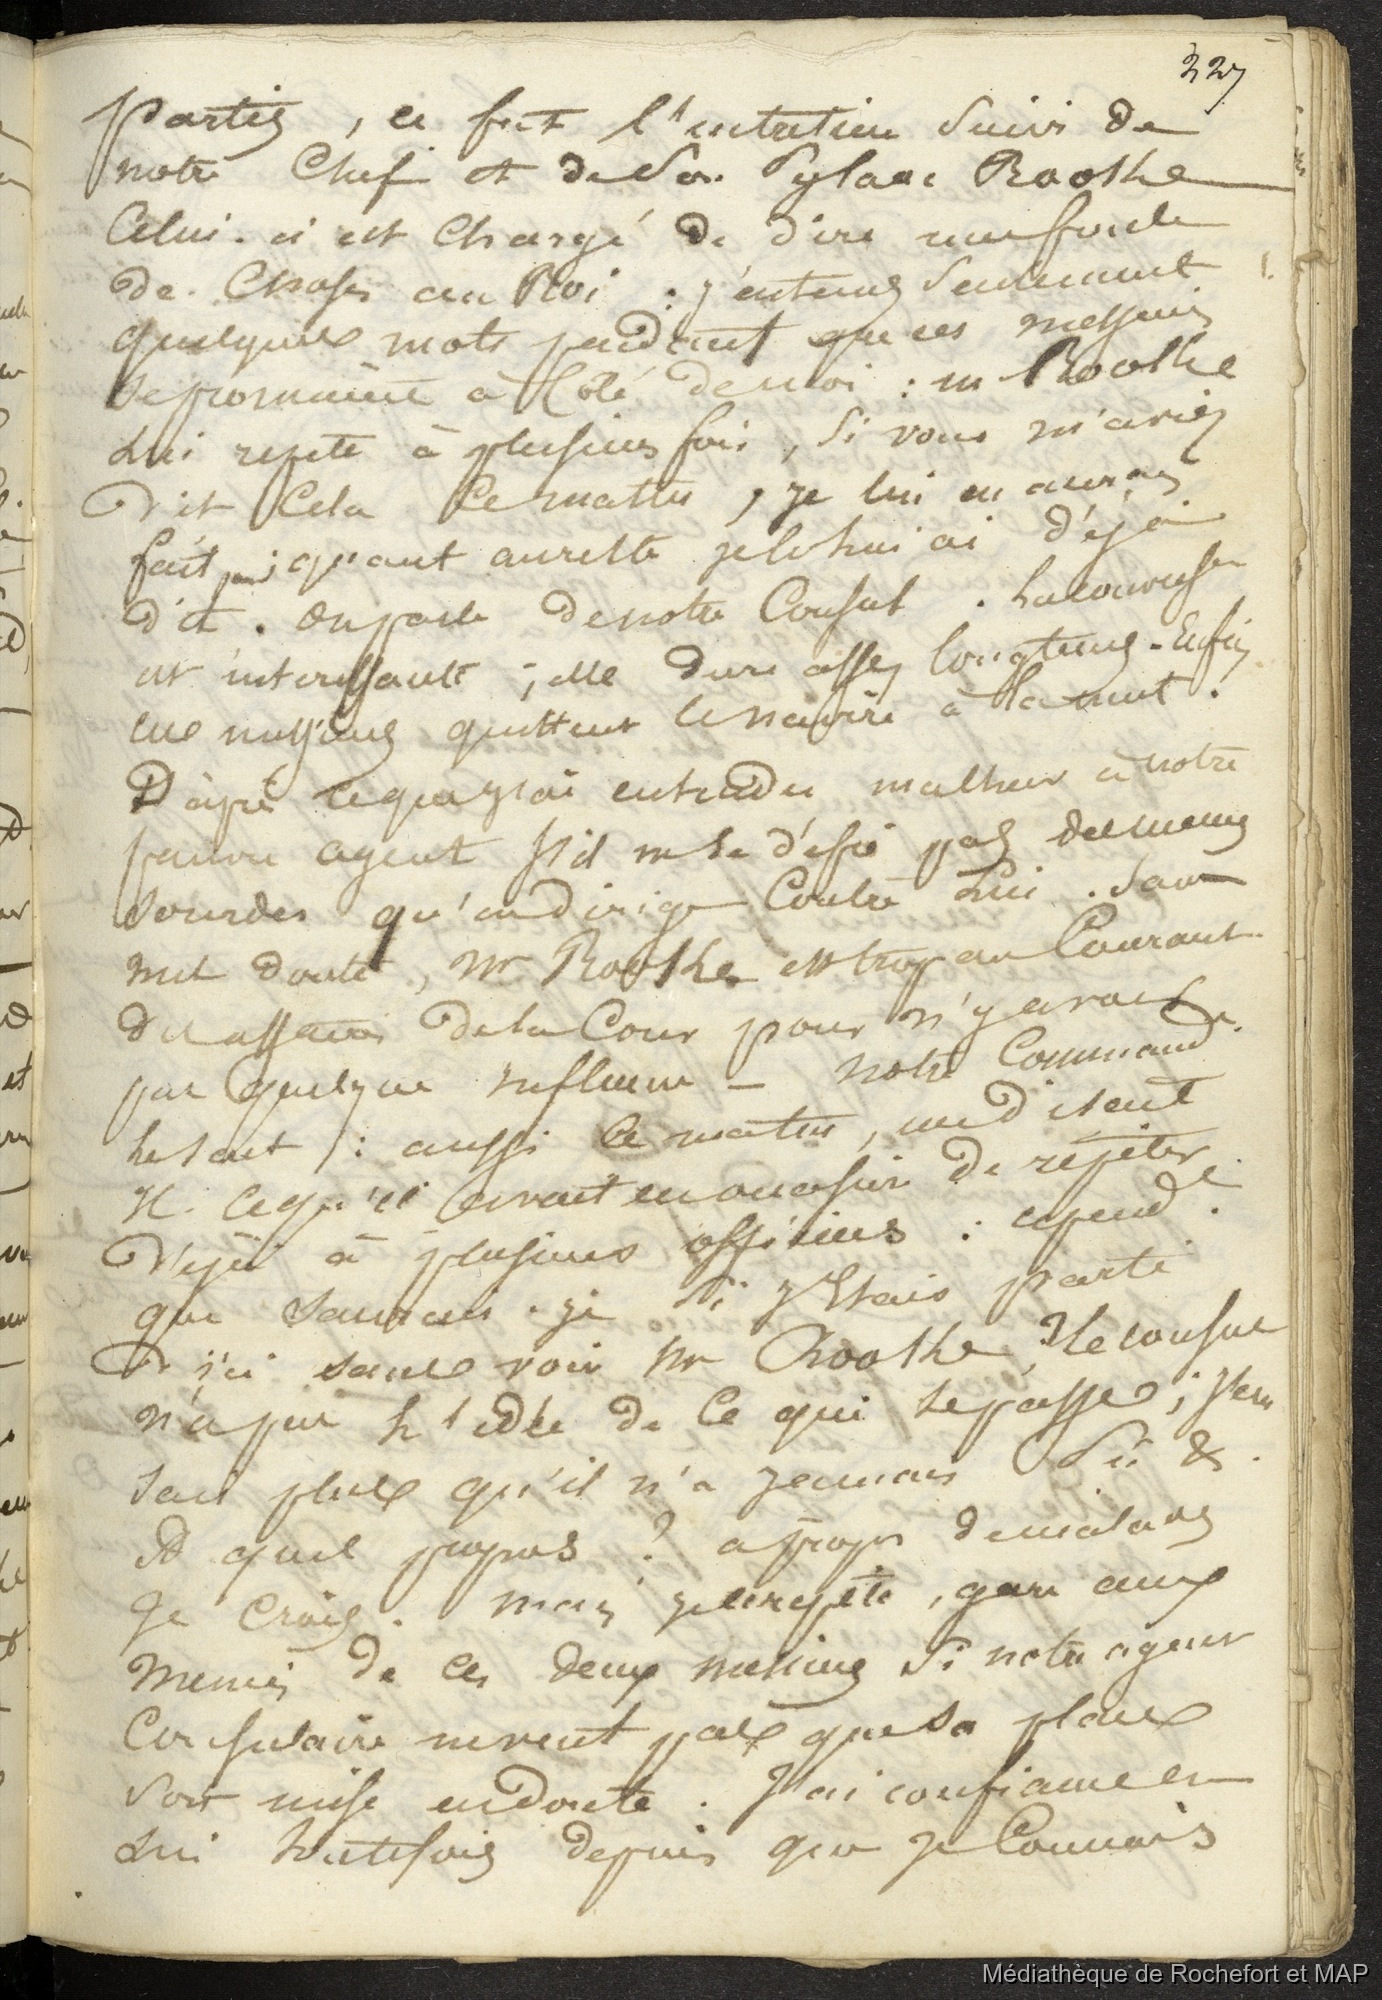 327
partis, ce fut l'entretien suivi de
notre Chef et de Son Pylade Roothe
Celui-ci est Chargé de dire une foule
de Choses au Roi : j'entens Seulement
quelques mots pendant que ces messieurs
se promènent à Côté de moi : m Roothe
Lui repete à plusieurs fois, Si vous m'aviez
dit Cela Ce matin, je lui en aurais
fait ; quant au reste je le lui ai déja
dit. On parle de notre Consul.
est interessante ; elle dure assez longtems. Enfin
ces messieurs quittent le navire à la nuit.
D'après ce que j'ai entendu malheur à notre
pauvre agent s'il ne se défie pas des menés
sourdes qu'on dirige Contre Lui. Sans
nul doute, Mr Roothe est trop au Courant
des affaires de la Cour pour n'y avoir
pas quelque influence — notre Command.t
le sent : aussi Ce matin, me disait
il Ce qu'il avait eu occasion de répéter
déjà à plusieurs officiers : cepend.t
que saurais-je Si j'Etais parti
d'ici sans voir Mr Roothe, le consul
n'a pas l'idée de Ce qui se passe ; j'en
sais plus qu'il n'a jamais Sû &.
A quel propos ? a propos de
Je Crois. Mais je le répète, gare aux
menés de Ces deux messieurs Si notre agent
Consulaire ne veut pas que Sa place
Soit mise en doute. J'ai confiance en
Lui toutefois depuis que je Connais
Médiathèque de Rochefort et MAP